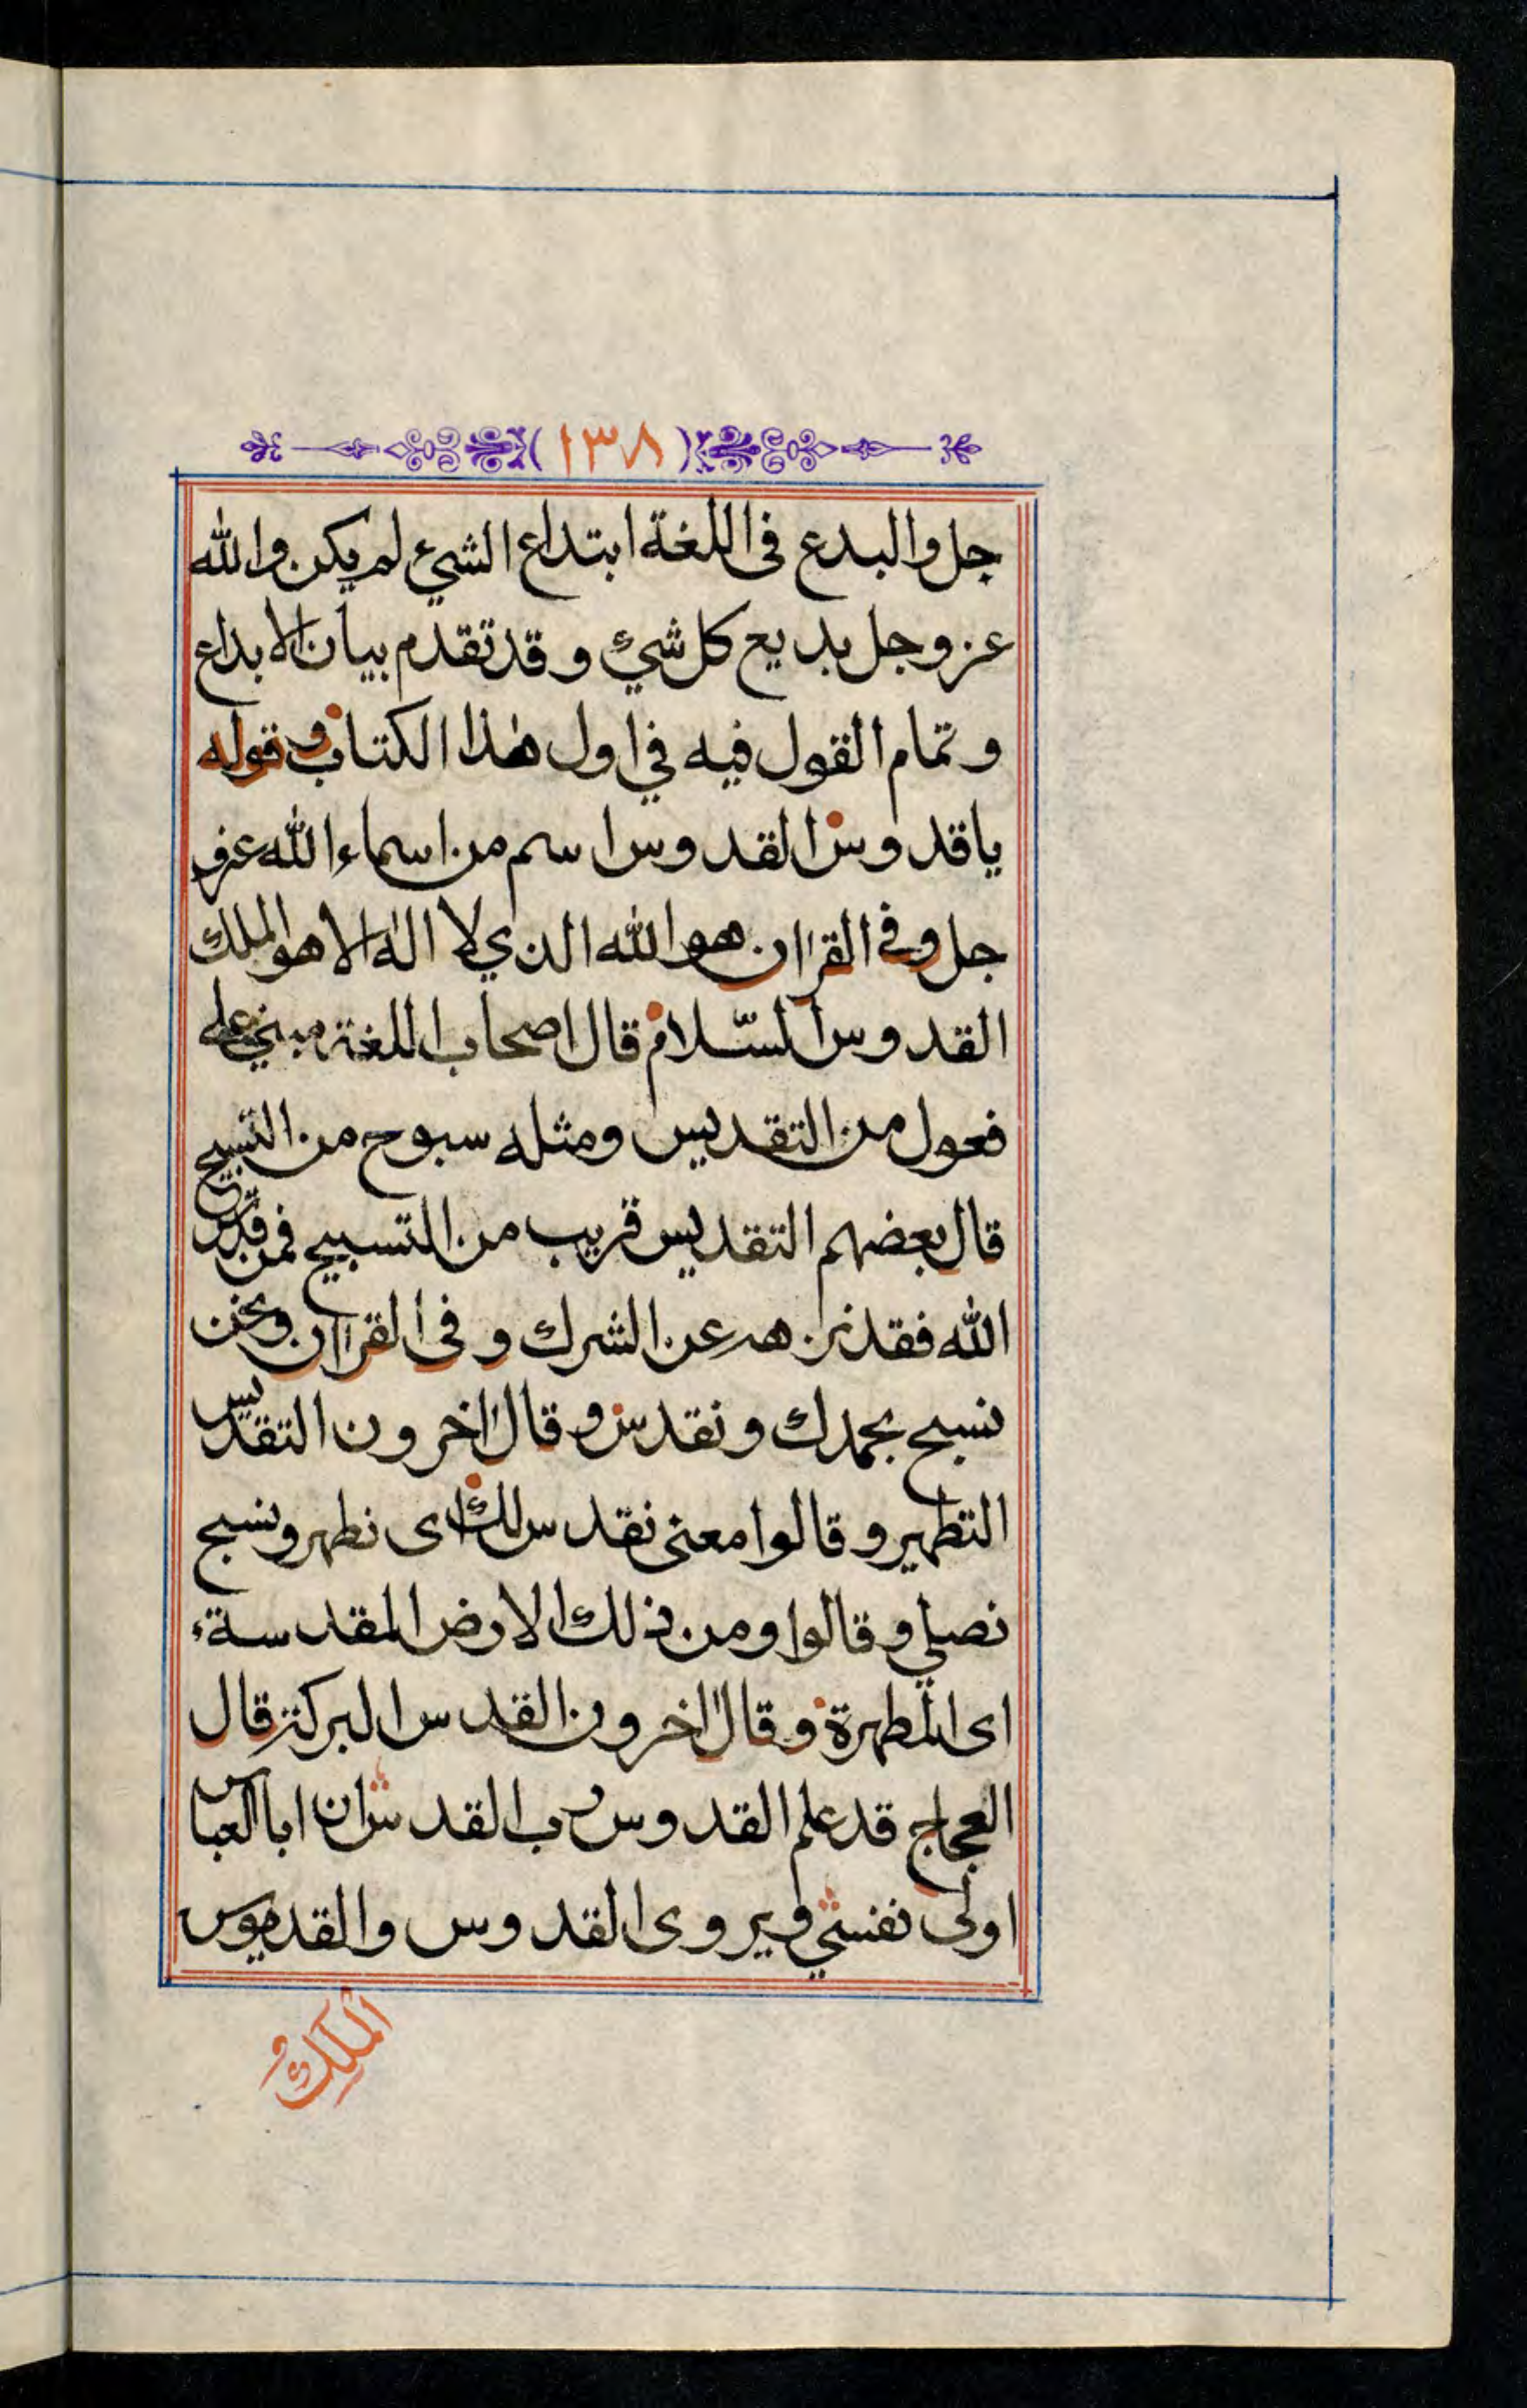 (١٣٨)
جل والبدع فى اللغة ابتداع الشيئ لم يكن والله
عز وجل بديع كل شيئ وقد تقدم بيان الابداع
وتمام القول فيه في اول هٰذا الكتاب وقوله
ياقدوس القدوس اسم من اسماء الله عز و
جل وفى القراان هو الله الذي لا الٰه الا هو الملك
القدوس السّلام قال اصحاب اللغة مبني على
فعول من التقديس ومثله سبوح من التسبيح
قال بعضهم التقديس قريب من التسبيح فمن قدّس
الله فقد نزهه عن الشرك وفى القراان ونحن
نسبح بحمدك ونقدس وقال اخرون التقديس
التطهير وقالوا معنى نقدس لك اى نطهر ونسبح
نصلي وقالوا ومن ذلك الارض المقدسة
اى المطهرة وقال اخرون القدس البركة قال
العجاج قد علم القدوس رب القدس ان ابا العباس
اولى نفسي ويروى القدوس والقدموس
الملك